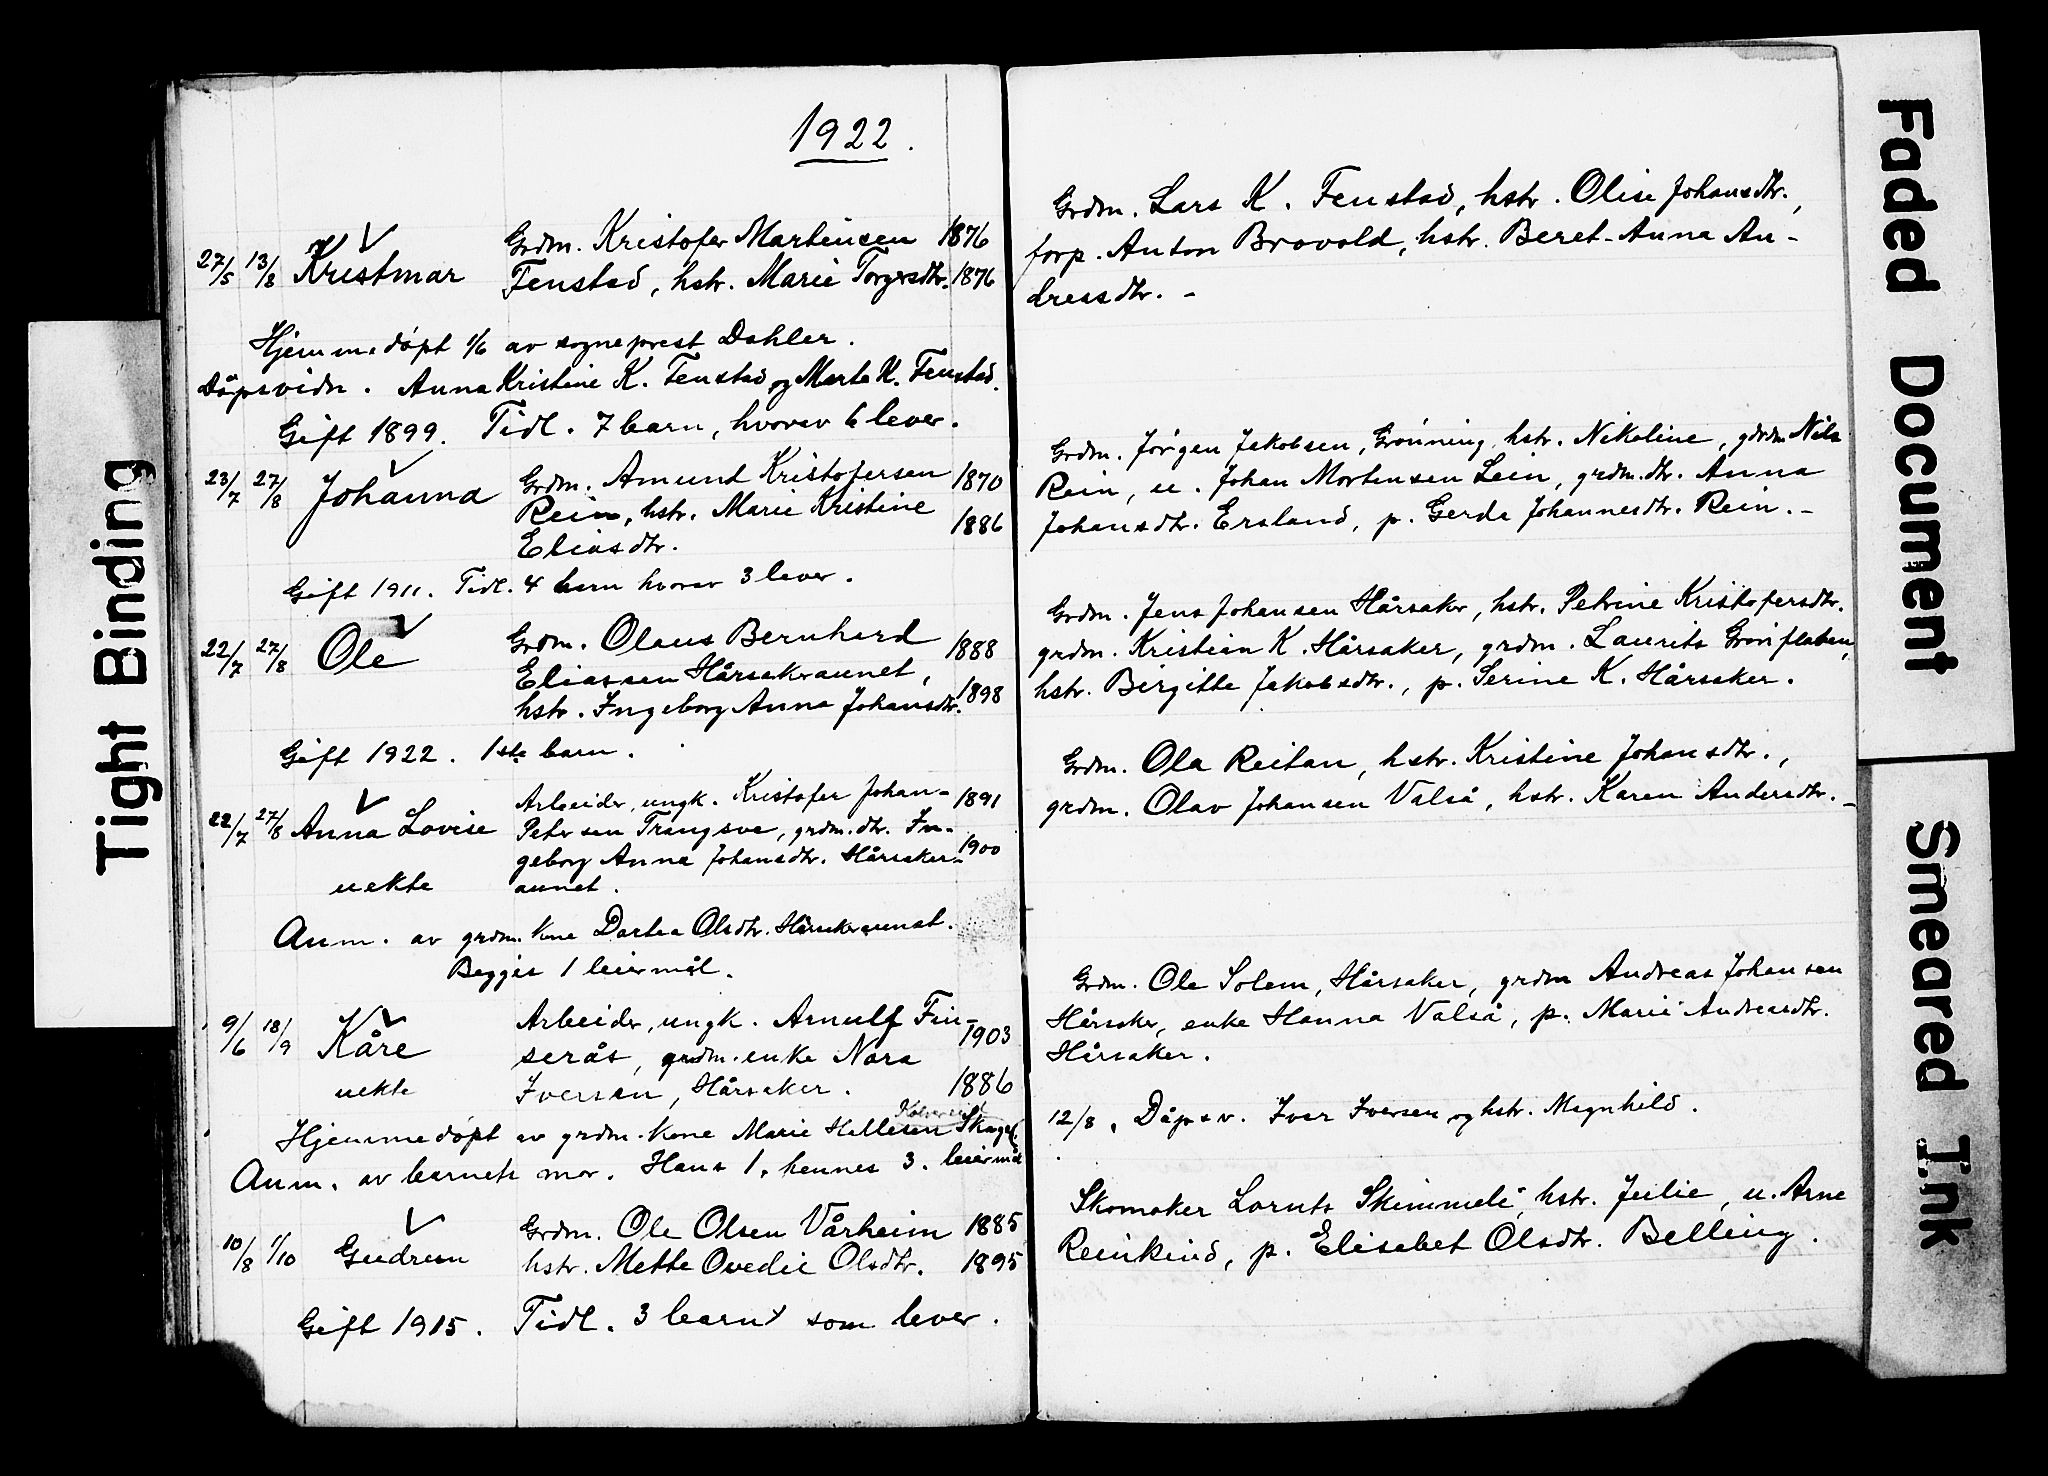 1922.
27/5 13/8 Kristmar Grdm. Kristofer Martinsen 1876
Fenstad, hstr. Marie Torgersdtr. 1876
Hjemmedøpt 1/6 av sogneprest Dahler.
Dåpsvidn. Anna Kristine K. Fenstad og Marta K. Fenstad.
Gift 1899. Tidl. 7 barn, hvorav 6 lever.
23/7 27/8 Johanna Grdm. Amund Kristofersen 1870
Rein, hstr. Marie Kristine 1886
Eliasdtr.
Gift 1911. Tidl. 4 barn hvorav 3 lever.
22/7 27/8 Ole Grdm. Olaus Bernhard 1888
Eliassen Hårsakraunet,
hstr. Ingeborg Anna Johansdtr. 1898
Gift 1922. 1ste barn.
22/7 27/8 Anna Lovise Arbeider, ungk. Kristofer Johan- 1891
Petersen Trangsve, grdm.dtr. In-
geborg Anna Johansdtr. Hårsaker- 1900
uekte aunet.
Anm. av grdm. kone Dortea Olsdtr. Hårsakeraunet.
Begges 1 leiermål.
9/6 18/9 Kåre Arbeider, ungk. Arnulf Fin-
serås, grdm. enke Nora 1903
uekte Iversen, Hårsaker. 1886
Hjemmedøpt av grdm. kone Marie Hellesen Skagel.
Anm. av barnets mor. Hans 1, hennes 3. leiermål
10/8 1/10 Gudrun Grdm. Ole Olsen Vårheim 1885
hstr. Mette Ovedie Olsdtr. 1895
Gift 1915. Tidl. 3 barn som lever.
Grdm. Lars K. Fenstad, hstr. Olise Johansdtr.,
forp. Anton Brovold, hstr. Beret-Anna An-
dreasdtr. -
Grdm. Jørgen Jakobsen, Grønning, hstr. Nikoline, grdm Nils
Rein, u. Johan Mortensen Lein, grdm.dtr. Anna
Johansdtr. Ersland, p. Gerda Johannesdtr. Rein. -
Grdm. Jens Johansen Hårsaker, hstr. Petrine Kristofersdtr.
grdm. Kristian K. Hårsaker, grdm. Laurits Grønflaten,
hstr. Birgitte Jakobsdtr., p. Serine K. Hårsaker.
Grdm. Ola Reitan, hstr. Kristine Johansdtr.,
grdm. Olav Johansen Valså, hstr. Karen Andersdtr. -
Grdm. Ole Solem, Hårsaker, grdm Andreas Johansen
Hårsaker, enke Hanna Valså, p. Marie Andreasdtr.
Hårsaker.
12/8. Dåpsv. Ivar Iversen og hstr. Magnhild.
Skomaker Lornts Skimmeli, hstr. Julie, u. Arne
Reinkind, p. Elisabet Olsdtr. Belling.
Tight Binding
Faded Document
Smeared Ink